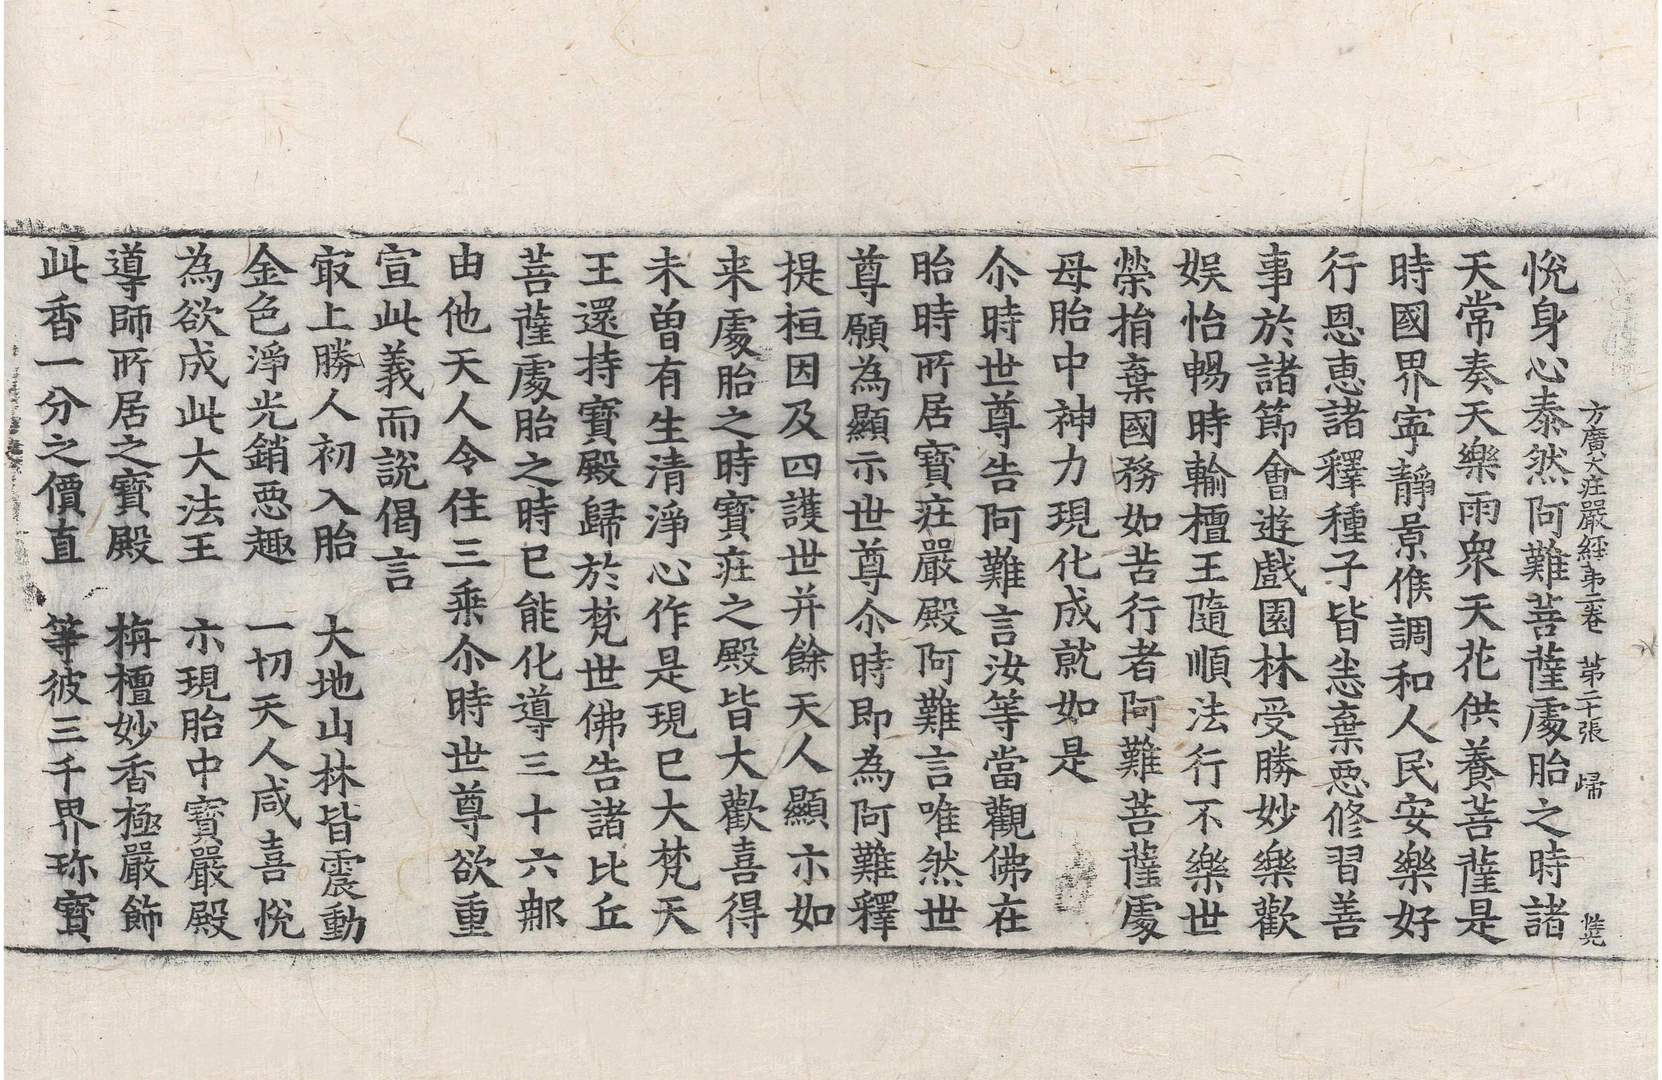 方廣大疘嚴經苐二卷　苐二十張　㱕
悅身心泰然阿難菩薩處胎之時諸
天常奏天樂雨衆天花供養菩薩是
時國界寧靜景候調和人民安樂好
行恩恵諸釋種子皆恙棄惡修習善
事於諸節會遊戲園林受勝妙樂歡
娛怡暢時輸檀王隨順法行不樂世
榮捐棄國務如苦行者阿難菩薩處
母胎中神力現化成就如是
尒時世尊告阿難言汝等當觀佛在
胎時所居寶疘嚴殿阿難言唯然世
尊願為顯示世尊尒時即為阿難釋
提桓因及四護世并餘天人顯示如
来處胎之時寳疘之殿皆大歡喜得
未曽有生清淨心作是現已大梵天
王還持寶殿歸於梵世佛告諸比丘
菩薩處胎之時已能化導三十六那
由他天人令住三乗尒時世尊欲重
宣此義而說偈言
㝡上勝人初入胎　大地山林皆震動
金色淨光銷惡趣　一切天人咸喜悅
為欲成此大法王　示現胎中寶嚴殿
導師所居之寶殿　栴檀妙香極嚴飾
此香一分之價直　等彼三千界珎寶